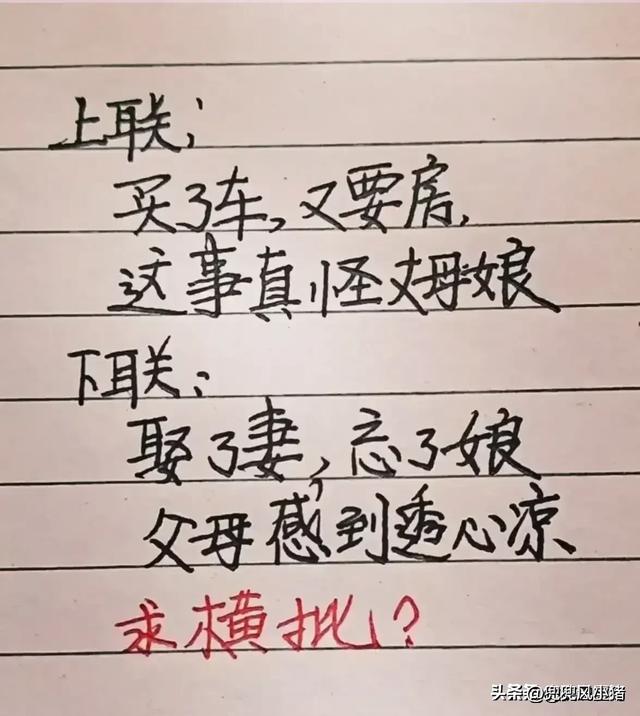 上联；
买了车，又要房，
这事真怪丈母娘
下联：
娶了妻，忘了娘
父母感到透心凉
求横批？